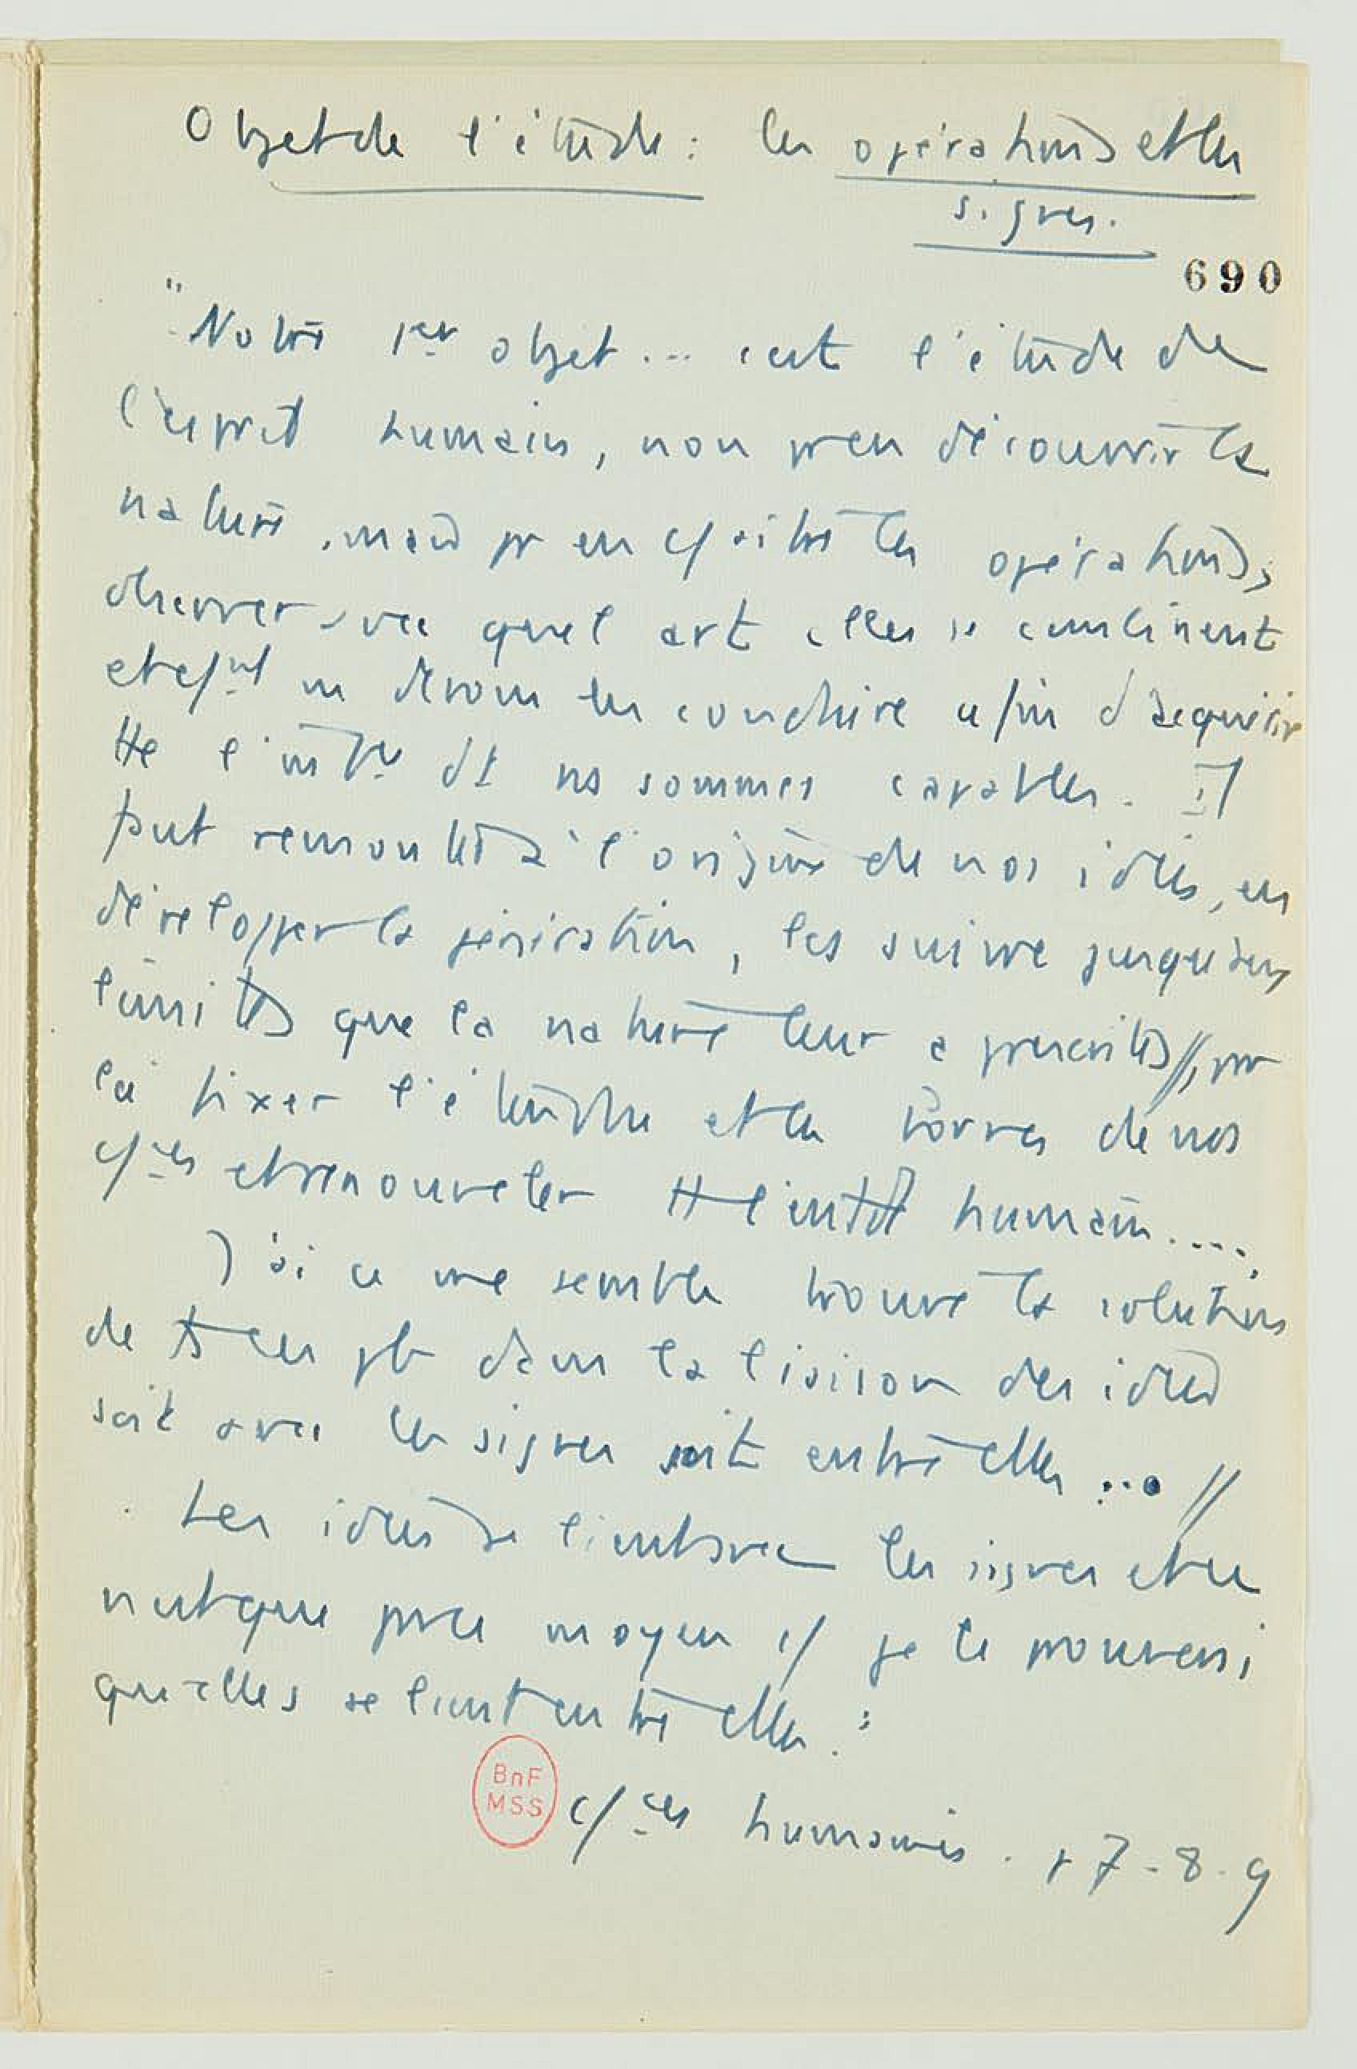 Objet de l'étude : les opérations et les
signes.
690
"Notre 1er objet ... c'est l'étude de
l'esprit humain, non pr en découvrir la
nature, mais pr en c/aître les opérations,
observer avec quel art elles se combinent
et c/nt ns devons les conduire afin d'acquérir
tte l'intce dt ns sommes capables. Il
faut remonter à l'origine de nos idées, en
développer la génération, les suivre jusqu'aux
limites que la nature leur a prescrites//, par
là fixer l'étendue et les bornes de nos
c/ces et renouveler tt l'entdt humain....
J'ai ce me semble trouvé la solution
de ts ces pb dans la liaison des idées
soit avec les signes soit entre elles ... //
Les idées se lient avec les signes et ce
n'est que par ce moyen c/ je le prouverai
qu'elles se lient entre elles."
BnF
MSS
c/ces humaines. p 7-8-9